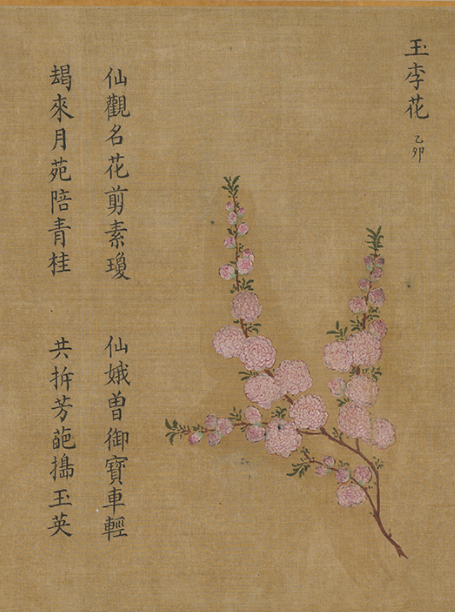 玉李花 乙卯
仙觀名花剪素瓊 仙娥曽御寶車輕
朅來月苑陪青桂 共拆芳葩搗玉英